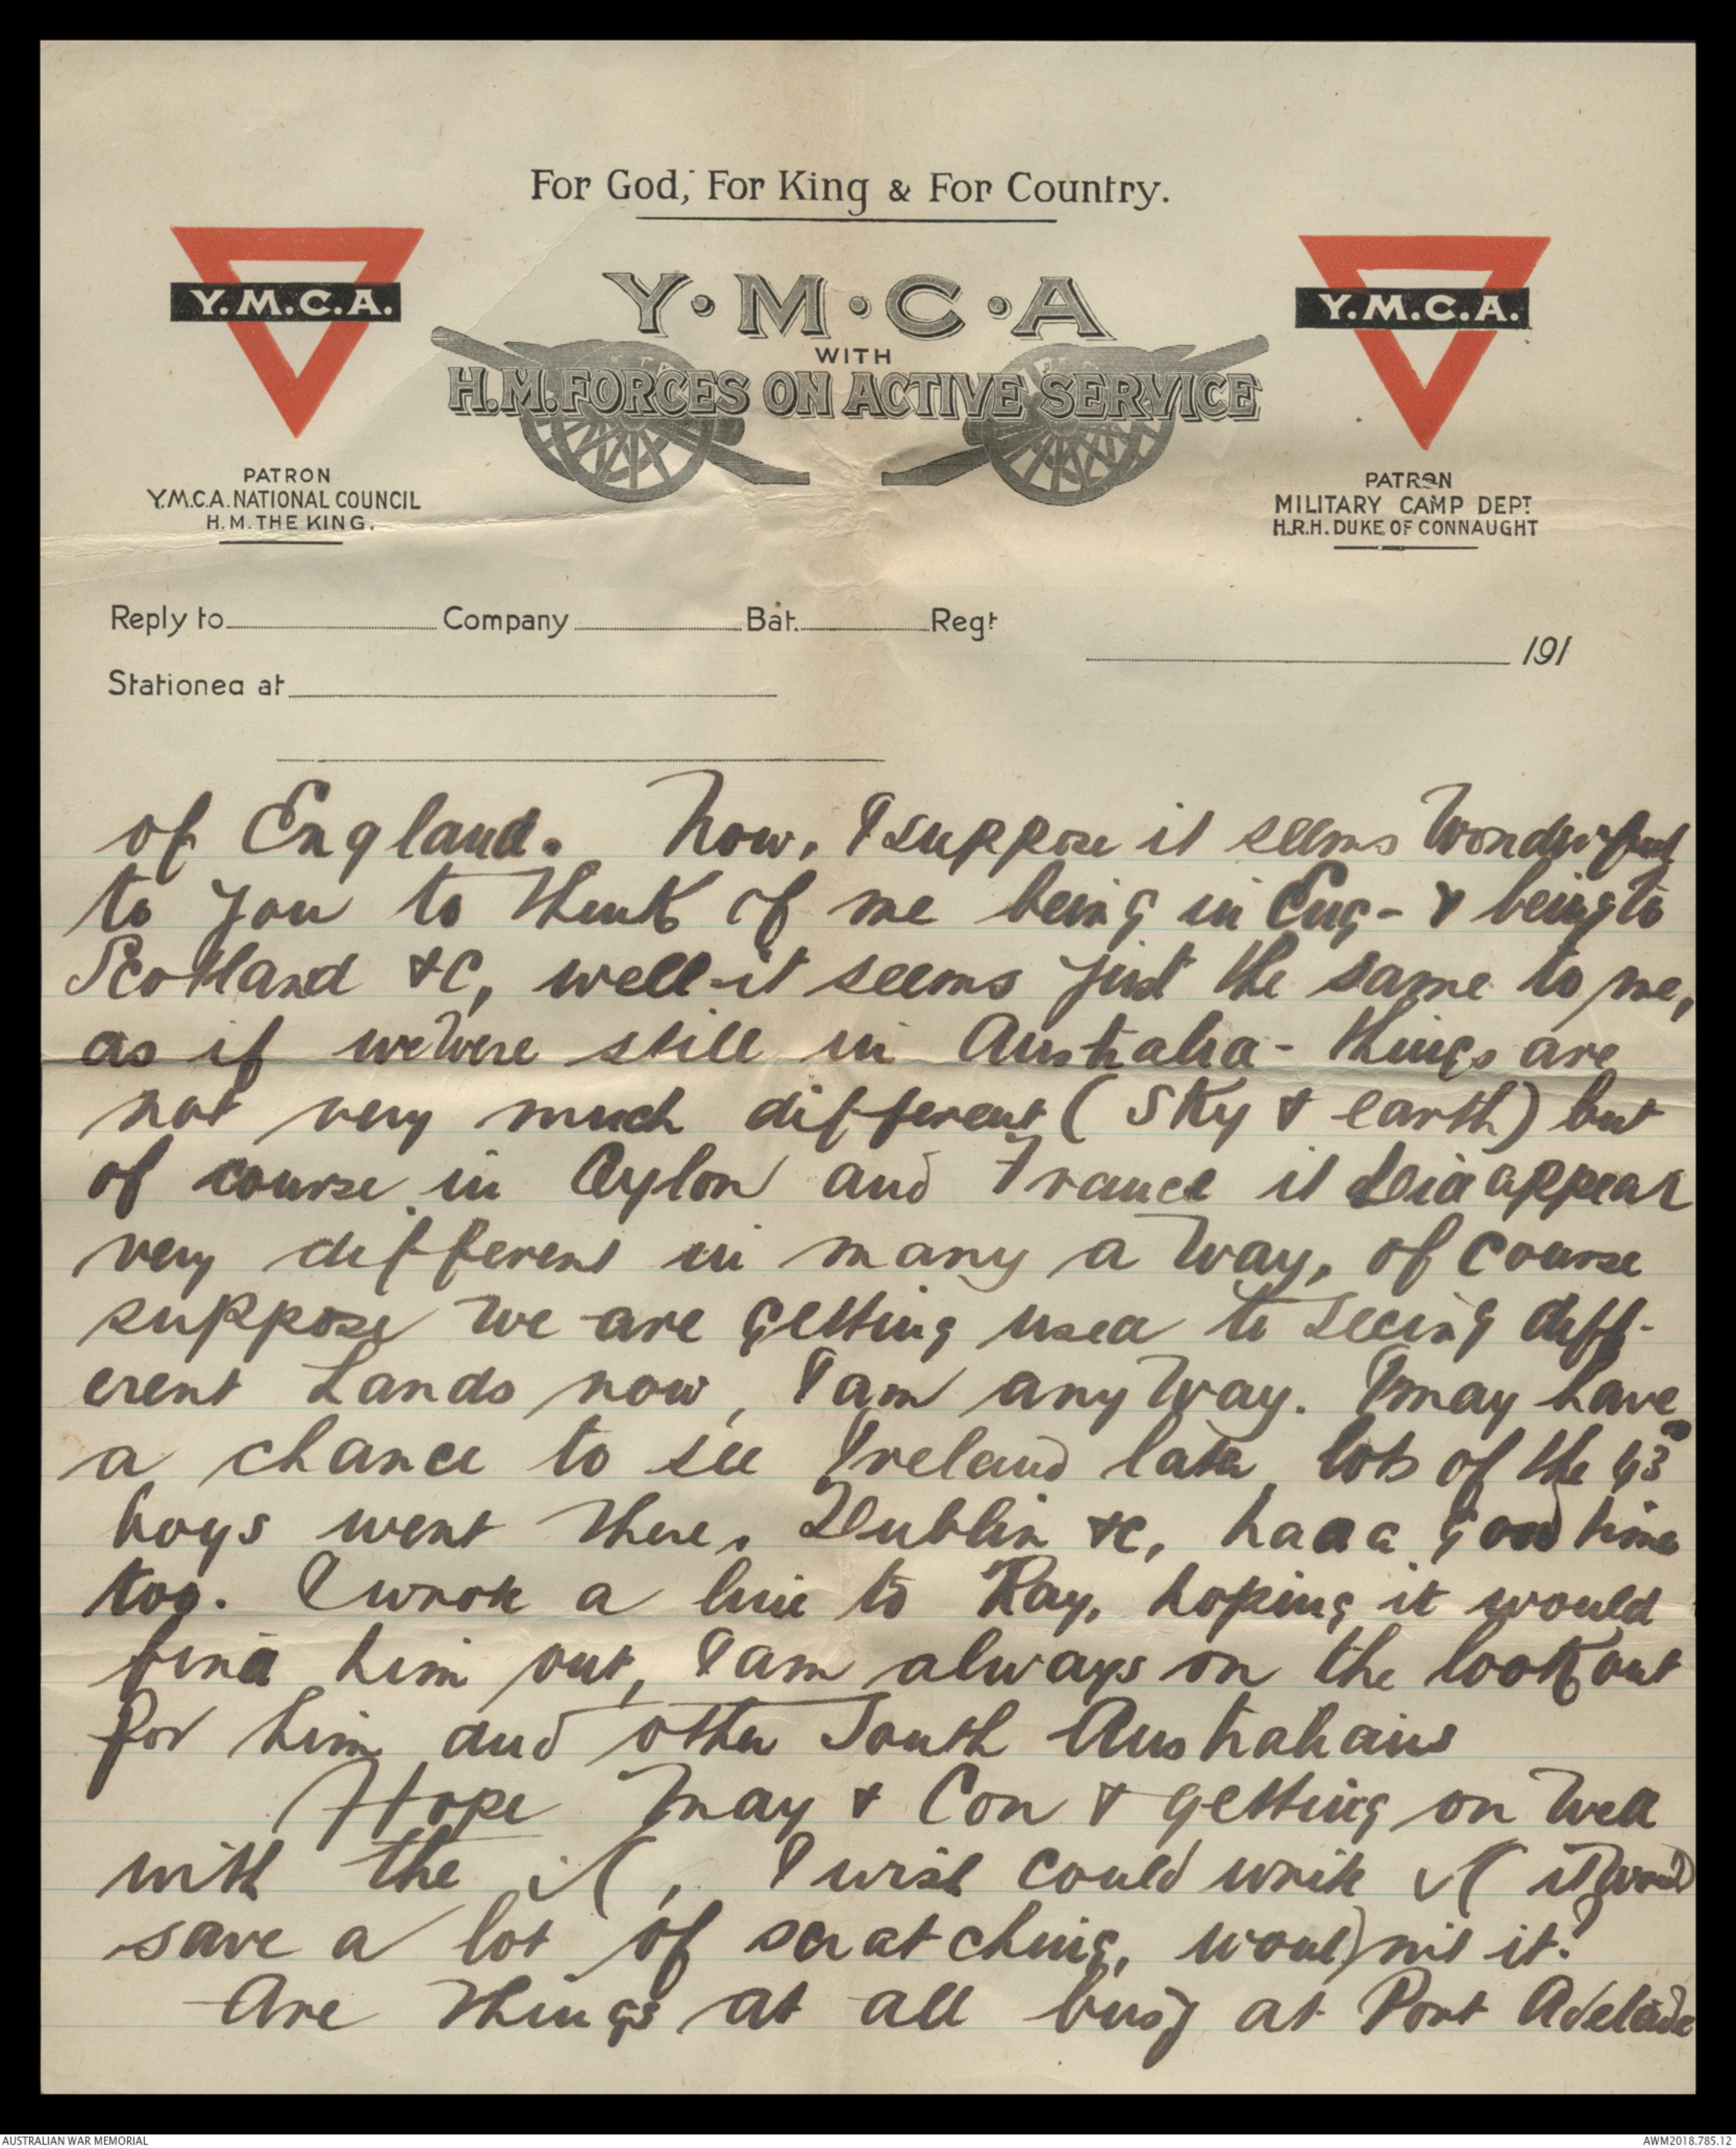 For God, For King & For Country.
Y.M.C.A.
Y·M·C·A
WITH
H.M. FORCES ON ACTIVE SERVICE
Y.M.C.A.
PATRON
Y.M.C.A. NATIONAL COUNCIL
H.M. THE KING.
PATRON
MILITARY CAMP DEPT.
H.R.H. DUKE OF CONNAUGHT
Reply to Company Bat. Regt
191
Stationed at
of England. Now, I suppose it seems wonderful
to you to think of me being in Eng- & being to
Scotland &c, well-it seems just the same to me,
as if we were still in Australia - things are
not very much different (sky & earth) but
of course in Ceylon and France it did appear
very different in many a way, of course
suppose we are getting used to seeing diff-
erent Lands now, I am any way. I may have
a chance to see Ireland later lots of the 43rd
boys went there, Dublin &c, had a good time
too. I wrote a line to Ray, hoping it would
find him out, I am always on the look out
for him and other South Australians
Hope May & Con & getting on well
with the , I wish could write it would
save a lot of scratching, would nit it?
Are things at all busy at Port Adelaide
AUSTRALIAN WAR MEMORIAL
AWM2018.785.12